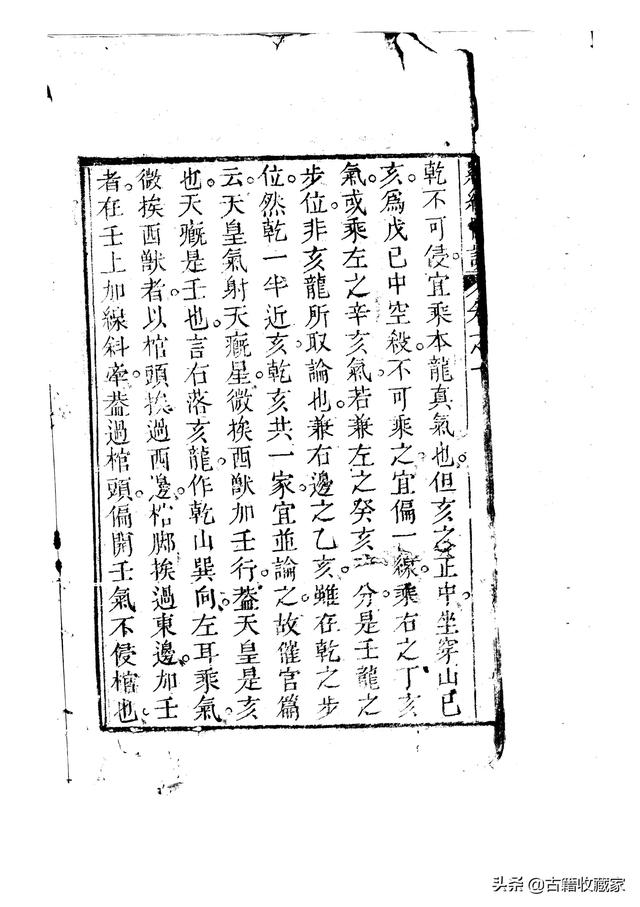 乾不可侵宜乘本龍真氣也但亥之正中坐穿山已
亥為戊已中空殺不可乘之宜偏一線乘右之丁亥
氣或乘左之辛亥氣若兼左之癸亥分是壬龍之
步位非亥龍所取論也兼右邊之乙亥雖在乾之步
位然乾一半近亥乾亥共一家宜並論之故催官篇
云天皇氣射天廐星微挨西獸加壬行葢天皇是亥
也天廐是壬也言右落亥龍作乾山巽向左耳乘氣
微挨西獸者以棺頭挨過西邊棺脚挨過東邊加壬
者在壬上加線斜牽葢過棺頭偏開壬氣不侵棺也
头条 @古籍收藏家